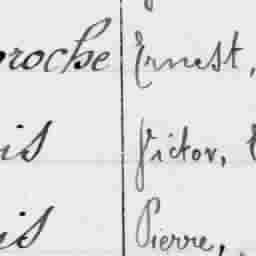 roche Ernest,
is Victor,
is Pierre,